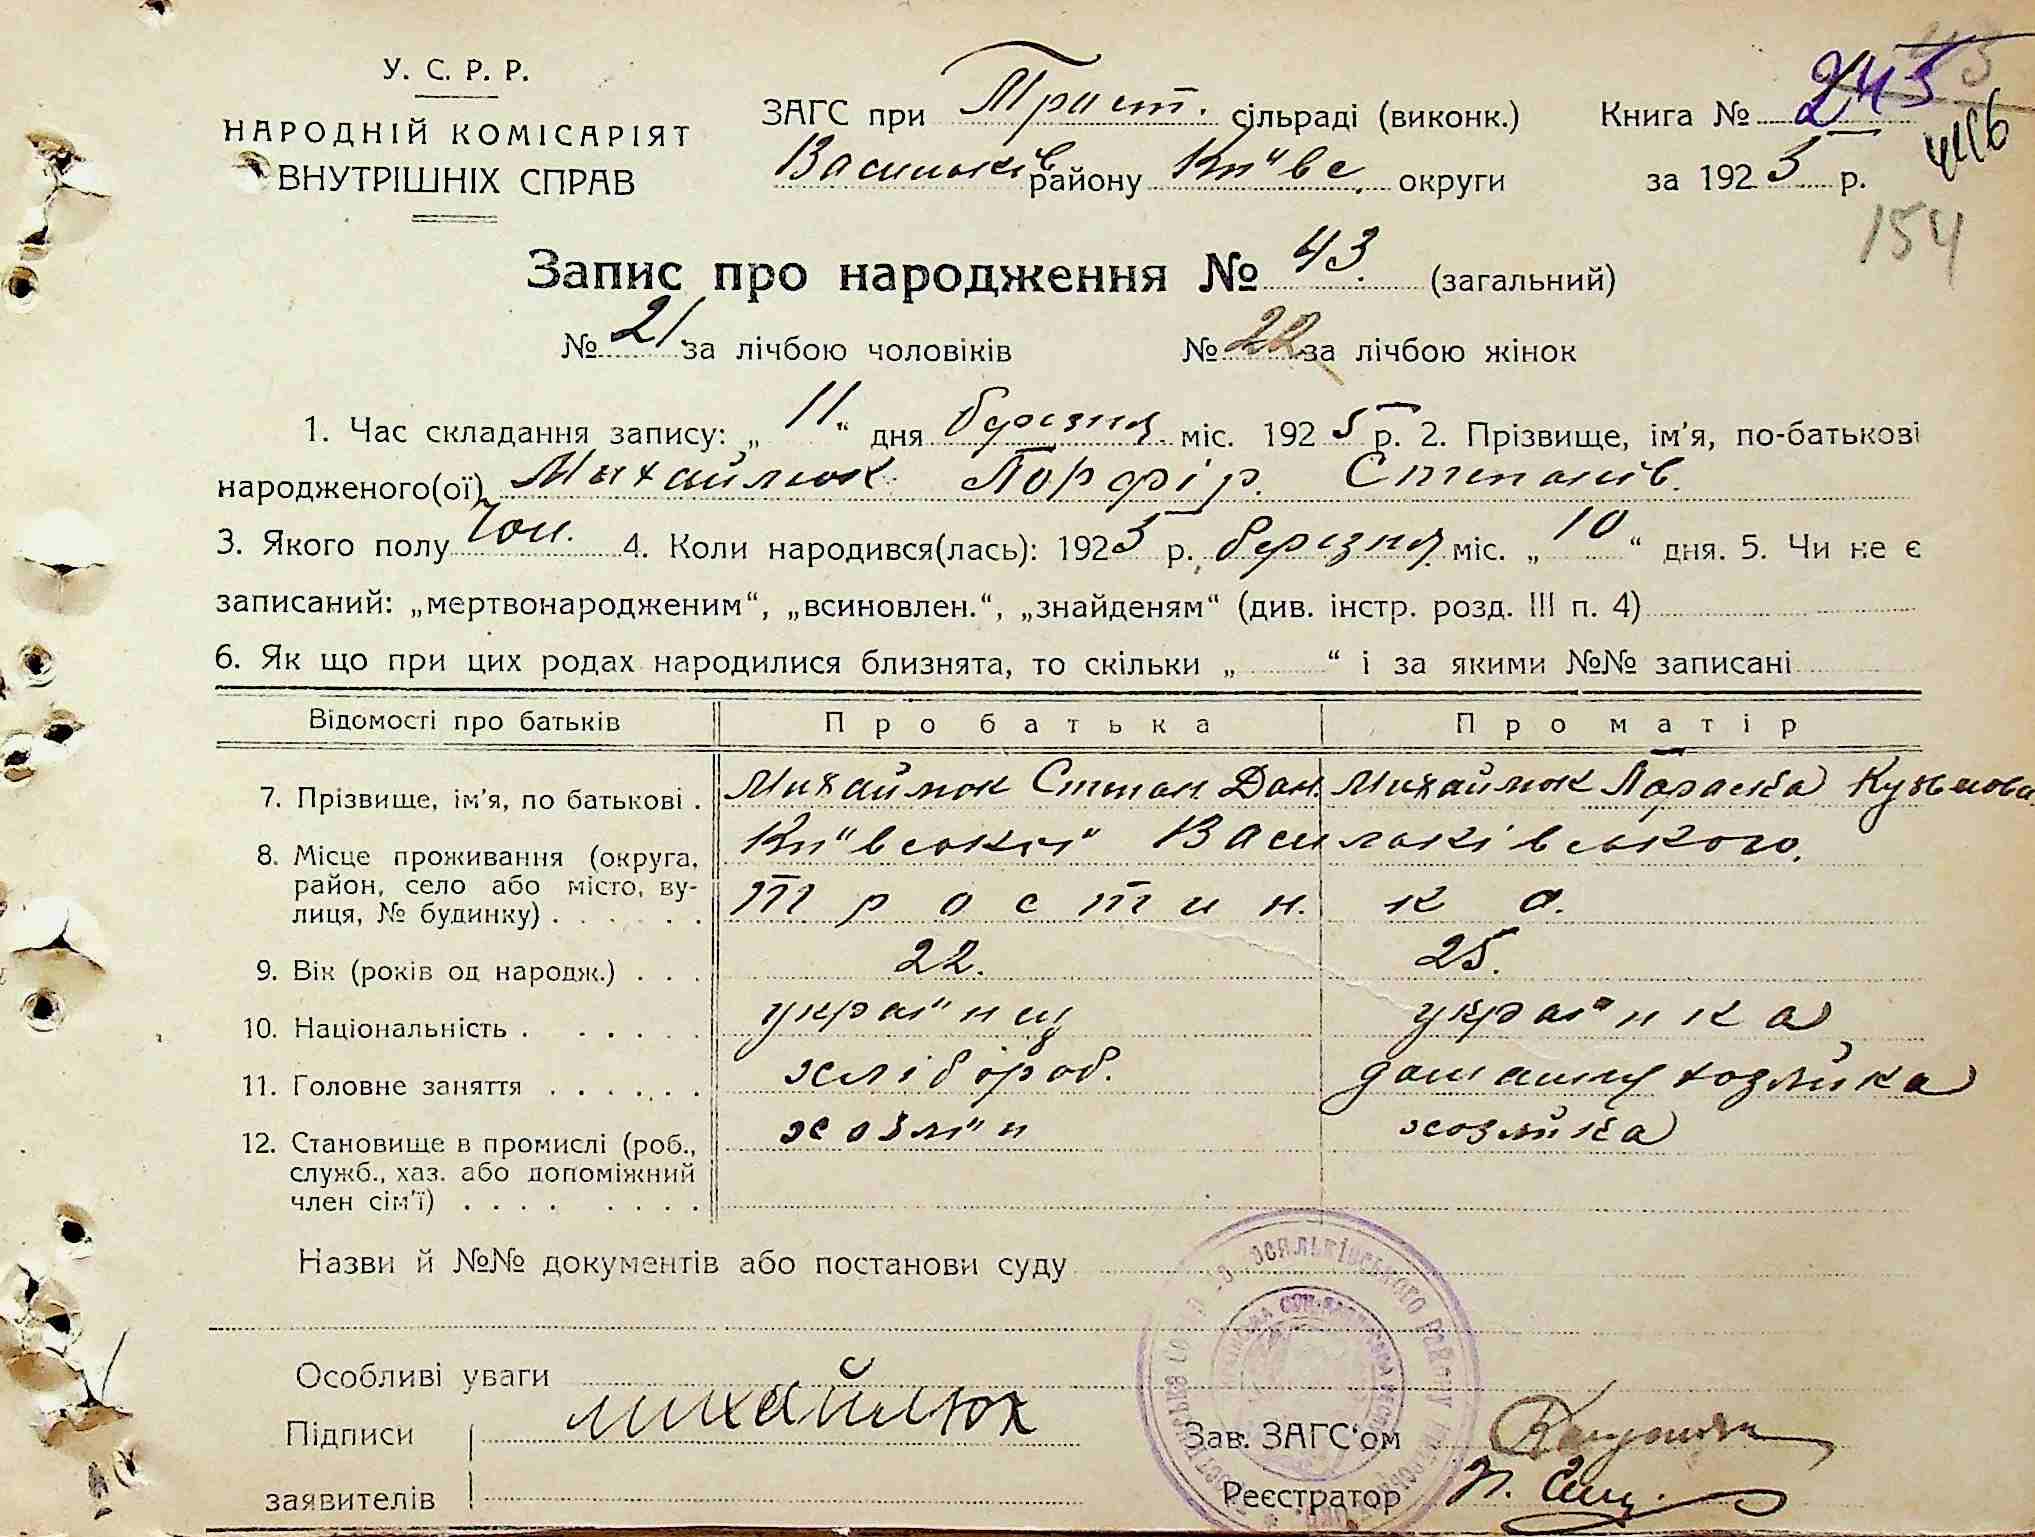 У. С. Р. Р.
НАРОДНІЙ КОМІСАРІЯТ
ВНУТРІШНІХ СПРАВ
ЗАГС при Трост. сільраді (виконк.)
Васильків району Київс. округи
Книга № 245
за 1925 р.
154
Запис про народження № 43. (загальний)
№ 21 за лічбою чоловіків № 22 за лічбою жінок
1. Час складання запису: „ 11 “ дня березня міс. 1925 р. 2. Прізвище, ім'я, по-батькові
народженого(ої) Михайлюк Порфір. Степанів.
3. Якого полу чол. 4. Коли народився(лась): 1925 р. березня міс. „ 10 “ дня. 5. Чи не є
записаний: „мертвонародженим“, „всиновлен.“, „знайденям“ (див. інстр. розд. III п. 4)
6. Як що при цих родах народилися близнята, то скільки „ “ і за якими №№ записані
Відомості про батьків Про батька Про матір
7. Прізвище, ім'я, по батькові . Михайлюк Степан Дан. Михайлюк Параска Кузьмова
8. Місце проживання (округа, Київської Васильківського.
район, село або місто, ву-
лиця, № будинку) . . . . . . Тростин. ка.
9. Вік (років од народж.) . . . 22. 25.
10. Національність . . . . . . українц українка
11. Головне заняття . . . . . . хлібороб. домашня хозяйка
12. Становище в промислі (роб., хозяїн хозяйка
служб., хаз. або допоміжний
член сім'ї) . . . . . . . .
Назви й №№ документів або постанови суду
Особливі уваги
Підписи Михайлюк Зав. ЗАГС'ом
заявителів Реєстратор